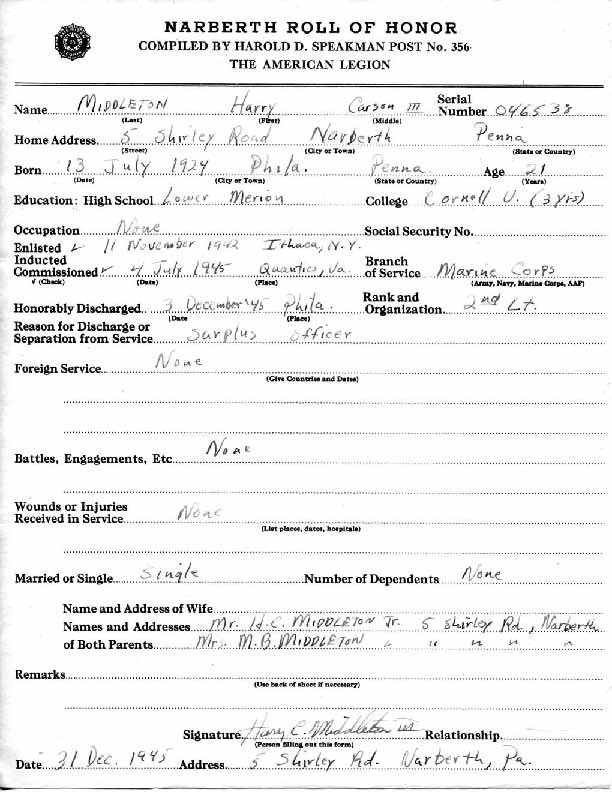 NARBERTH ROLL OF HONOR
COMPILED BY HAROLD D. SPEAKMAN POST No. 356
THE AMERICAN LEGION
Name MIDDLETON Harry Carson III Serial Number 046538
(Last) (First) (Middle)
Home Address 5 Shirley Road Narberth Penna
(Street) (City or Town) (State or Country)
Born 13 July 1924 Phila. Penna. Age 21
(Date) (City or Town) (State or Country) (Years)
Education: High School Lower Merion College Cornell U. (3 yrs)
Occupation None Social Security No.
Enlisted ✓ 11 November 1942 Ithaca, N.Y.
Inducted
Commissioned ✓ 4 July 1945 Quantico, Va. Branch of Service Marine Corps
√ (Check) (Date) (Place) (Army, Navy, Marine Corps, AAF)
Honorably Discharged 3 December '45 Phila. Rank and Organization 2nd Lt.
(Date (Place)
Reason for Discharge or
Separation from Service Surplus officer
Foreign Service None
(Give Countries and Dates)
Battles, Engagements, Etc None
Wounds or Injuries
Received in Service None
(List places, dates, hospitals)
Married or Single Single Number of Dependents None
Name and Address of Wife
Names and Addresses Mr. H.C. MIDDLETON Jr. 5 Shirley Rd., Narberth
of Both Parents Mrs. M.B. MIDDLETON " " " " "
Remarks
(Use back of sheet if necessary)
Signature Harry C. Middleton III Relationship
(Person filling out this form)
Date 31 Dec. 1945 Address 5 Shirley Rd. Narberth, Pa.